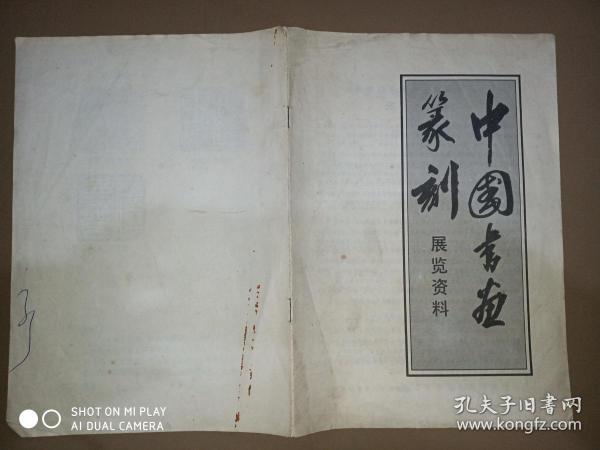 中国书画
篆刻
展览资料
SHOT ON MI PLAY
AI DUAL CAMERA
孔夫子旧书网
www.kongfz.com